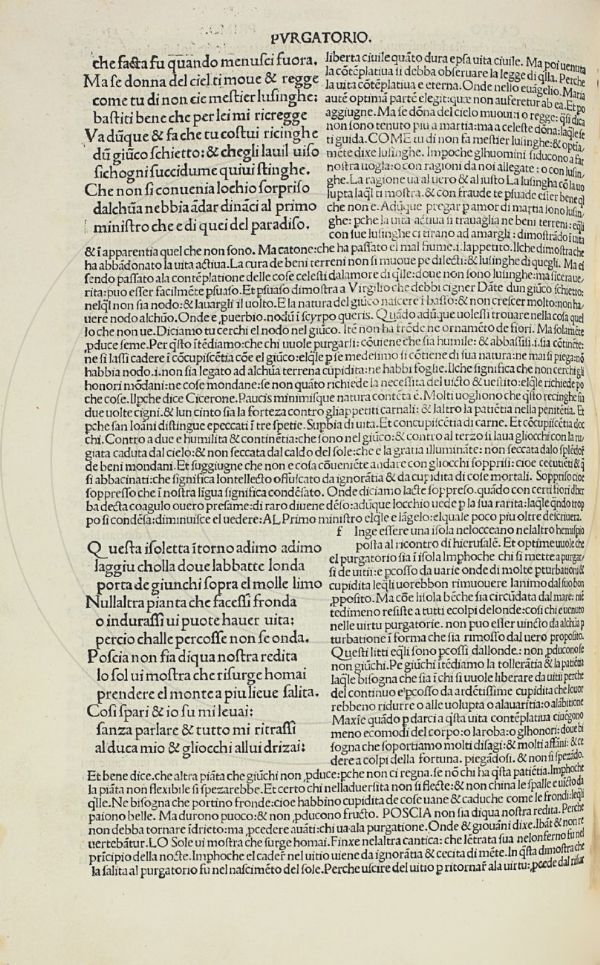 PVRGATORIO.
che facta fu quando menusci fuora.
Ma se donna del ciel ti moue & regge
come tu di non cie mestier lusinghe:
bastiti bene che per lei mi richegge
Va dūque & fa che tu costui ricinghe
dū giūco schietto: & chegli laui l uiso
si chogni succidume quiui stinghe.
Che non si conuenia lochio sorpriso
dalchūa nebbia ādar dināci al primo
ministro che e di quei del paradiso.
liberta ciuile quāto dura epsa uita ciuile. Ma poi uenuta
la cōtēplatiua si debba obseruare la legge di qlla. Perche
la uita cōtēplatiua e eterna. Onde nello euāgelio. Maria
autē optimā partē elegit: quæ non auferetur ab ea. Et po
aggiugne. Ma se dōna del cielo muoui: o regge: qsi dica
non sono tenuto piu a martia: ma a celeste dōna: laqle se
ti guida. COME tu di non fa mestier lusinghe: & optia
mēte dixe lusinghe. Impoche glhuomini si ducono a far
nostra uogla: o con ragioni da noi allegate: o con lusin
ghe. La ragione ua al uero & al iusto. La lusingha cō la uo
lupta laql ti mostra. & con fraude te psuade eēr bene ql
che non e. Adūque pregar p amor di martia sono lusin
ghe: pche la uita actiua si trauaglia ne beni terreni: & qli
con sue lusinghe ci tirano ad amargli: dimostrādo i uita
& ī apparentia quel che non sono. Ma catone: che ha passato el mal fiume. i. lappetito. Ilche dimostra che
ha abbādonato la uita actiua. La cura de beni terreni non si muoue pe dilecti: & lusinghe di quegli. Ma es
sendo passato ala contēplatione delle cose celesti dalamore di qlle: doue non sono lusinghe: ma sicera ue
rita: puo esser facilmēte psuaso. Et psuaso dimostra a Virgilio che debbi cigner Dāte dun giūco schietto:
nelql non sia nodo: & lauargli il uolto. E la natura del giūco nascere ī basso: & non crescer molto: non ha
uere nodo alchūo. Onde e puerbio. nodū ī scyrpo queris. Quādo adūque uolessi trouare nella cosa quel
lo che non ue. Diciamo tu cerchi el nodo nel giūco. Itē non ha frōde ne ornamēto de fiori. Ma solamēte
pduce seme. Per qsto ītēdiamo: che chi uuole purgarsi: cōuiene che sia humile: & abbassisi. i. sia cōtinēte:
ne si lassi cadere ī cōcupiscētia cōe el giūco: elqle p se medesimo si cōtiene di sua natura: ne mai si piega: nō
habbia nodo. i. non sia legato ad alchūa terrena cupidita: ne habbi foglie. Ilche significa che non cerchi gli
honori mōdani: ne cose mondane: se non quāto richiede la necessita del uicto & uestito: elqle richiede po
che cose. Ilpche dice Cicerone. Paucis minimisque natura contēta ē. Molti uogliono che qsto recinghe sia
due uolte cigni. & lun cinto sia la forteza contro gliappetiti carnali: & laltro la patiētia nella penitētia. Et
pche san Ioāni distingue epeccati ī tre spetie. Supbia di uita. Et concupiscētia di carne. Et cōcupiscētia doc
chi. Contro a due e humilita & continētia: che sono nel giūco: & contro al terzo si laua gliocchi con la ru
giata caduta dal cielo: & non seccata dal caldo del sole: che e la gratia illuminate: non seccata dalo splēdor
de beni mondani. Et suggiugne che non e cosa cōueniēte andare con gliocchi soppriſi: cioe cecutiēti & q
si abbacinati: che significa lontellecto offuscato da ignorātia & da cupidita di cose mortali. Soppriso cioe
soppresso che ī nostra ligua significa condēsato. Onde diciamo lacte soppreso. quādo con certi fiori dher
ba decta coagulo ouero presame: di raro diuene dēso: adūque locchio uede p la sua rarita: laqle qndo trop
po si condēsa: diminuisce el uedere: AL Primo ministro elqle e lāgelo: elquale poco piu oltre descriuera.
Questa isoletta ītorno adimo adimo
laggiu cholla doue labbatte londa
porta de giunchi sopra el molle limo
Nullaltra pianta che facessi fronda
o indurassi ui puote hauer uita:
percio challe percosse non se onda.
Poscia non sia di qua nostra redita
lo sol ui mostra che risurge homai
prendere el monte a piu lieue salita.
Cosi spari & io su mi leuai:
sanza parlare & tutto mi ritrassi
al duca mio & gliocchi allui drizai:
f Inge essere una isola nelocceano nelaltro hemispio
posta al ricontro di hierusalē. Et optime uuole che
el purgatorio sia ī isola īmphoche chi si mette a purgar
si de uitii: e pcosso da uarie onde di molte pturbationi &
cupidita leqli uorebbon rimuouere lanimo dal suo bon
pposito. Ma cōe hisola bēche sia circūdata dal mare: niē
tedimeno resiste a tutti ecolpi delonde: cosi chi e uenuto
nelle uirtu purgatorie. non puo esser uincto da alchūa p
turbatione ī forma che sia rimosso dal uero proposito.
Questi litti eqli sono pcossi dallonde: non pducono se
non giūchi. Pe giūchi itēdiamo la tollerātia & la patiētia
laqle bisogna che sia ī chi si uuole liberare da uitii perche
del continuo e pcosso da ardētissime cupidita che louor
rebbeno ridurre o alle uolupta o alauaritia: o al ābitione
Maxīe quādo p darci a qsta uita contēplatiua ciuēgono
meno ecomodi del corpo: o la roba: o glhonori: doue bi
sogna che soportiamo molti disagi: & molti affāni: & ce
dere a colpi della fortuna. piegādosi. & non si spezādo.
Et bene dice. che altra piāta che giūchi non pduce: pche non ci regna. se nō chi ha qsta patiētia. Imphoche
la piāta non flexibile si spezarebbe. Et certo chi nelladuersita non si flecte: & non china le spalle e uicto da
qlle. Ne bisogna che portino fronde: cioe habbino cupidita de cose uane & caduche come le frondi: leqli
paiono belle. Ma durono puoco: & non pducono fructo. POSCIA non sia di qua nostra redita. Perche
non debba tornare īdrieto: ma pcedere auāti: chi ua ala purgatione. Onde & giouāni dixe. Ibāt & non re
uertebātur. LO Sole ui mostra che surge homai. Finxe nelaltra cantica: che lētrata sua nelonferno fu nel
prīcipio della nocte. Imphoche el cader nel uitio uiene da ignorātia & cecita di mēte. In qsta dimostra che
la salita al purgatorio fu nel nascimēto del sole. Perche uscire del uitio p ritornar ala uirtu: pcede dal risur